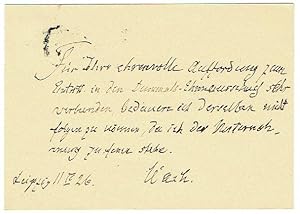 Für Ihre ehrenvolle Aufforderung zum
Eintritt in den Ehrenausschuß sehr
verbunden bedauere ich derselben nicht
folgen zu können, da ich der Unterneh-
mung zu ferne stehe.
Leipzig 11 IV 26. Wach.